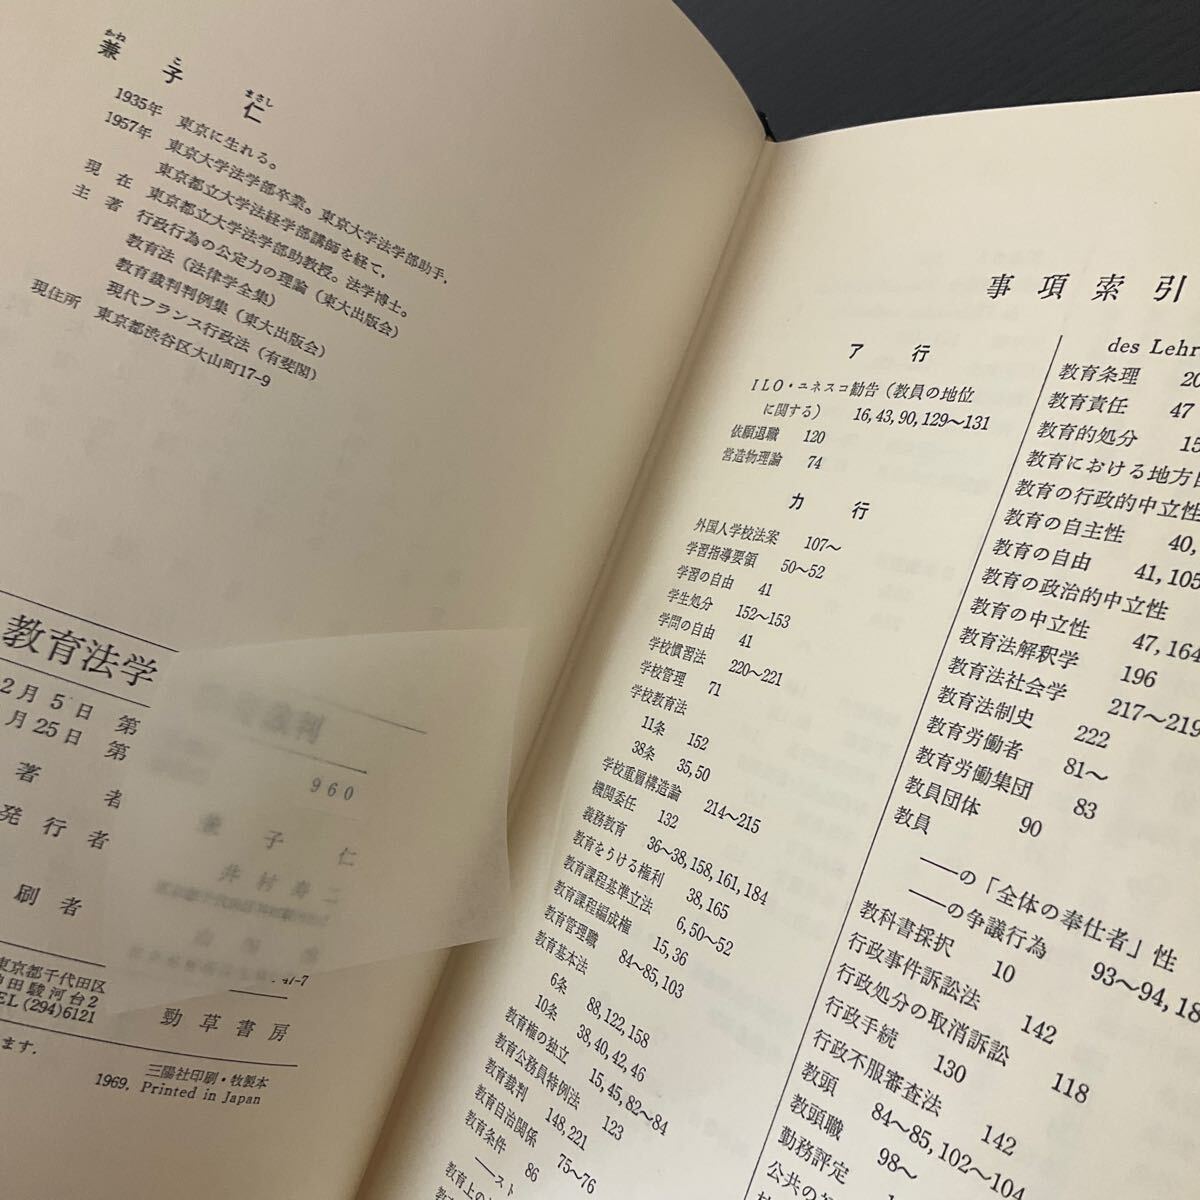 かね こ まさし
兼 子 仁
1935年 東京に生れる。
1957年 東京大学法学部卒業。東京大学法学部助手,
東京都立大学法経学部講師を経て,
現在 東京都立大学法学部助教授。法学博士。
主著 行政行為の公定力の理論（東大出版会）
教育法（法律学全集）
教育裁判判例集（東大出版会）
現代フランス行政法（有斐閣）
現住所 東京都渋谷区大山町17-9
教育法学
2月5日 第
月25日 第
裁判
960
著者
兼 子 仁
発行者
井村寿二
刷者
47-7
東京都千代田区
神田駿河台2
TEL (294)6121
勁草書房
ます.
三陽社印刷・牧製本
1969, Printed in Japan
事項索引
ア行
ILO・ユネスコ勧告（教員の地位
に関する） 16, 43, 90, 129〜131
依願退職 120
営造物理論 74
カ行
外国人学校法案 107〜
学習指導要領 50〜52
学習の自由 41
学生処分 152〜153
学問の自由 41
学校慣習法 220〜221
学校管理 71
学校教育法
11条 152
38条 35, 50
学校重層構造論 214〜215
機関委任 132
義務教育 36〜38, 158, 161, 184
教育をうける権利 38, 165
教育課程基準立法 6, 50〜52
教育課程編成権 15, 36
教育管理職 84〜85, 103
教育基本法
6条 88, 122, 158
10条 38, 40, 42, 46
教育権の独立 15, 45, 82〜84
教育公務員特例法 123
教育裁判 148, 221
教育自治関係 75〜76
教育条件 86
――スト
教育上の
des Lehr
教育条理 20
教育責任 47
教育的処分 15
教育における地方自
教育の行政的中立性
教育の自主性 40,
教育の自由 41, 105
教育の政治的中立性
教育の中立性 47, 164
教育法解釈学 196
教育法社会学 217〜219
教育法制史 222
教育労働者 81〜
教育労働集団 83
教員団体 90
教員
――の「全体の奉仕者」性
――の争議行為 93〜94, 18
教科書採択 10
行政事件訴訟法 142
行政処分の取消訴訟 118
行政手続 130
行政不服審査法 142
教頭 84〜85, 102〜104
教頭職 98〜
勤務評定
公共の